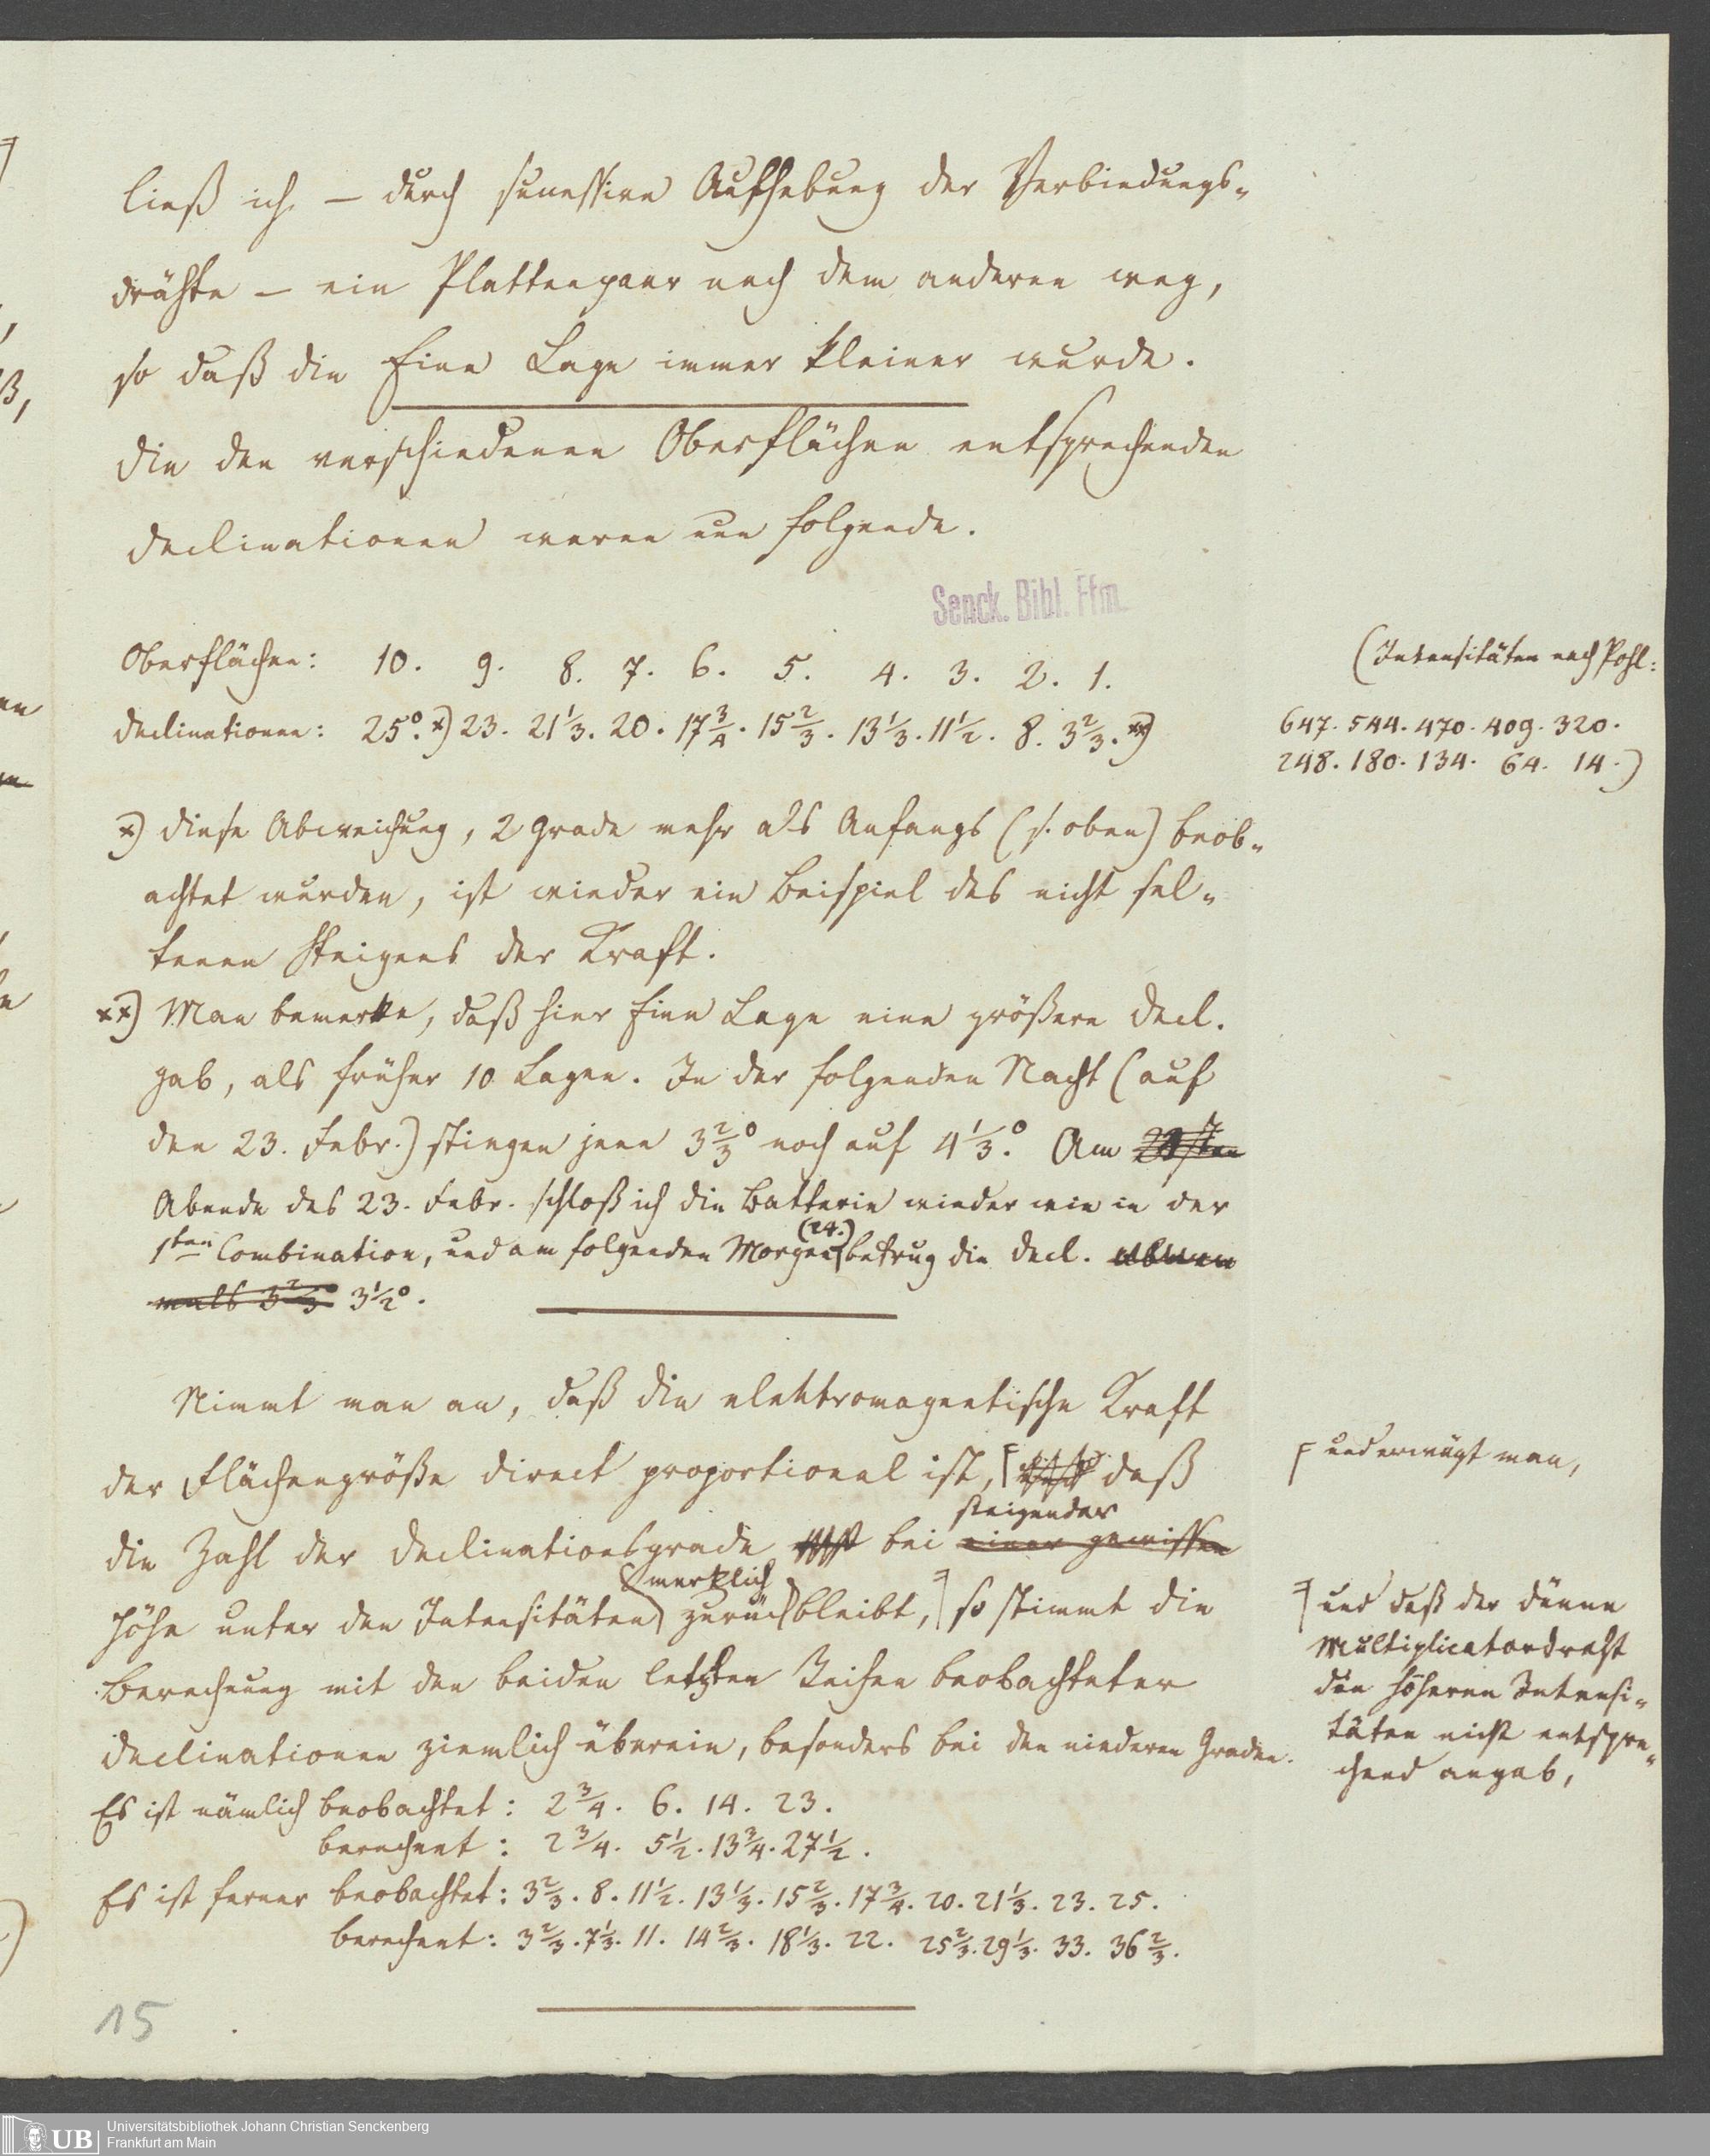 ließ ich – durch successive Aufhebung der Verbindungs-
drähte – ein Plattenpaar nach dem anderen weg,
so daß die Eine Lage immer kleiner wurde.
Die den verschiedenen Oberflächen entsprechenden
Declinationen waren nun folgende.
Senck. Bibl. Ffm.
Oberflächen: 10. 9. 8. 7. 6. 5. 4. 3. 2. 1.
Declinationen: 25°. *) 23. 21 1/3. 20. 17 3/4. 15 2/3. 13 1/3. 11 1/2. 8. 3 2/3. **)
(Intensitäten nach Pohl:
647. 544. 470. 409. 320.
248. 180. 134. 64. 14.)
*) Diese Abweichung, 2 Grade mehr als Anfangs (s. oben) beob-
achtet wurden, ist wieder ein Beispiel des nicht sel-
tenen Steigens der Kraft.
**) Man bemerke, daß hier Eine Lage eine größere Decl.
gab, als früher 10 Lagen. In der folgenden Nacht (auf
den 23. Febr.) stiegen jene 3 2/3° noch auf 4 1/3°. Am 23sten
Abende des 23. Febr. schloß ich die Batterie wieder wie in der
1ten Combination, und am folgenden Morgen (24.) betrug die Decl. aber
mals 3 2/3° 3 1/2°.
Nimmt man an, daß die elektromagnetische Kraft
der Flächengröße direct proportional ist, daß
die Zahl der Declinationsgrade bei einer gewissen steigender
Höhe unter den Intensitäten merklich zurückbleibt, so stimmt die
Berechnung mit den beiden letzten Reihen beobachteter
Declinationen ziemlich überein, besonders bei den niederen Graden.
Es ist nämlich beobachtet: 2 3/4. 6. 14. 23.
berechnet: 2 3/4. 5 1/2. 13 3/4. 27 1/2.
Es ist ferner beobachtet: 3 2/3. 8. 11 1/2. 13 1/3. 15 2/3. 17 3/4. 20. 21 1/3. 23. 25.
berechnet: 3 2/3. 7 1/3. 11. 14 2/3. 18 1/3. 22. 25 2/3. 29 1/3. 33. 36 2/3.
und erwägt man,
und daß der dünne
Multiplicatordraht
den höheren Intensi-
täten nicht entspre-
chend angab,
15
UB
Universitätsbibliothek Johann Christian Senckenberg
Frankfurt am Main